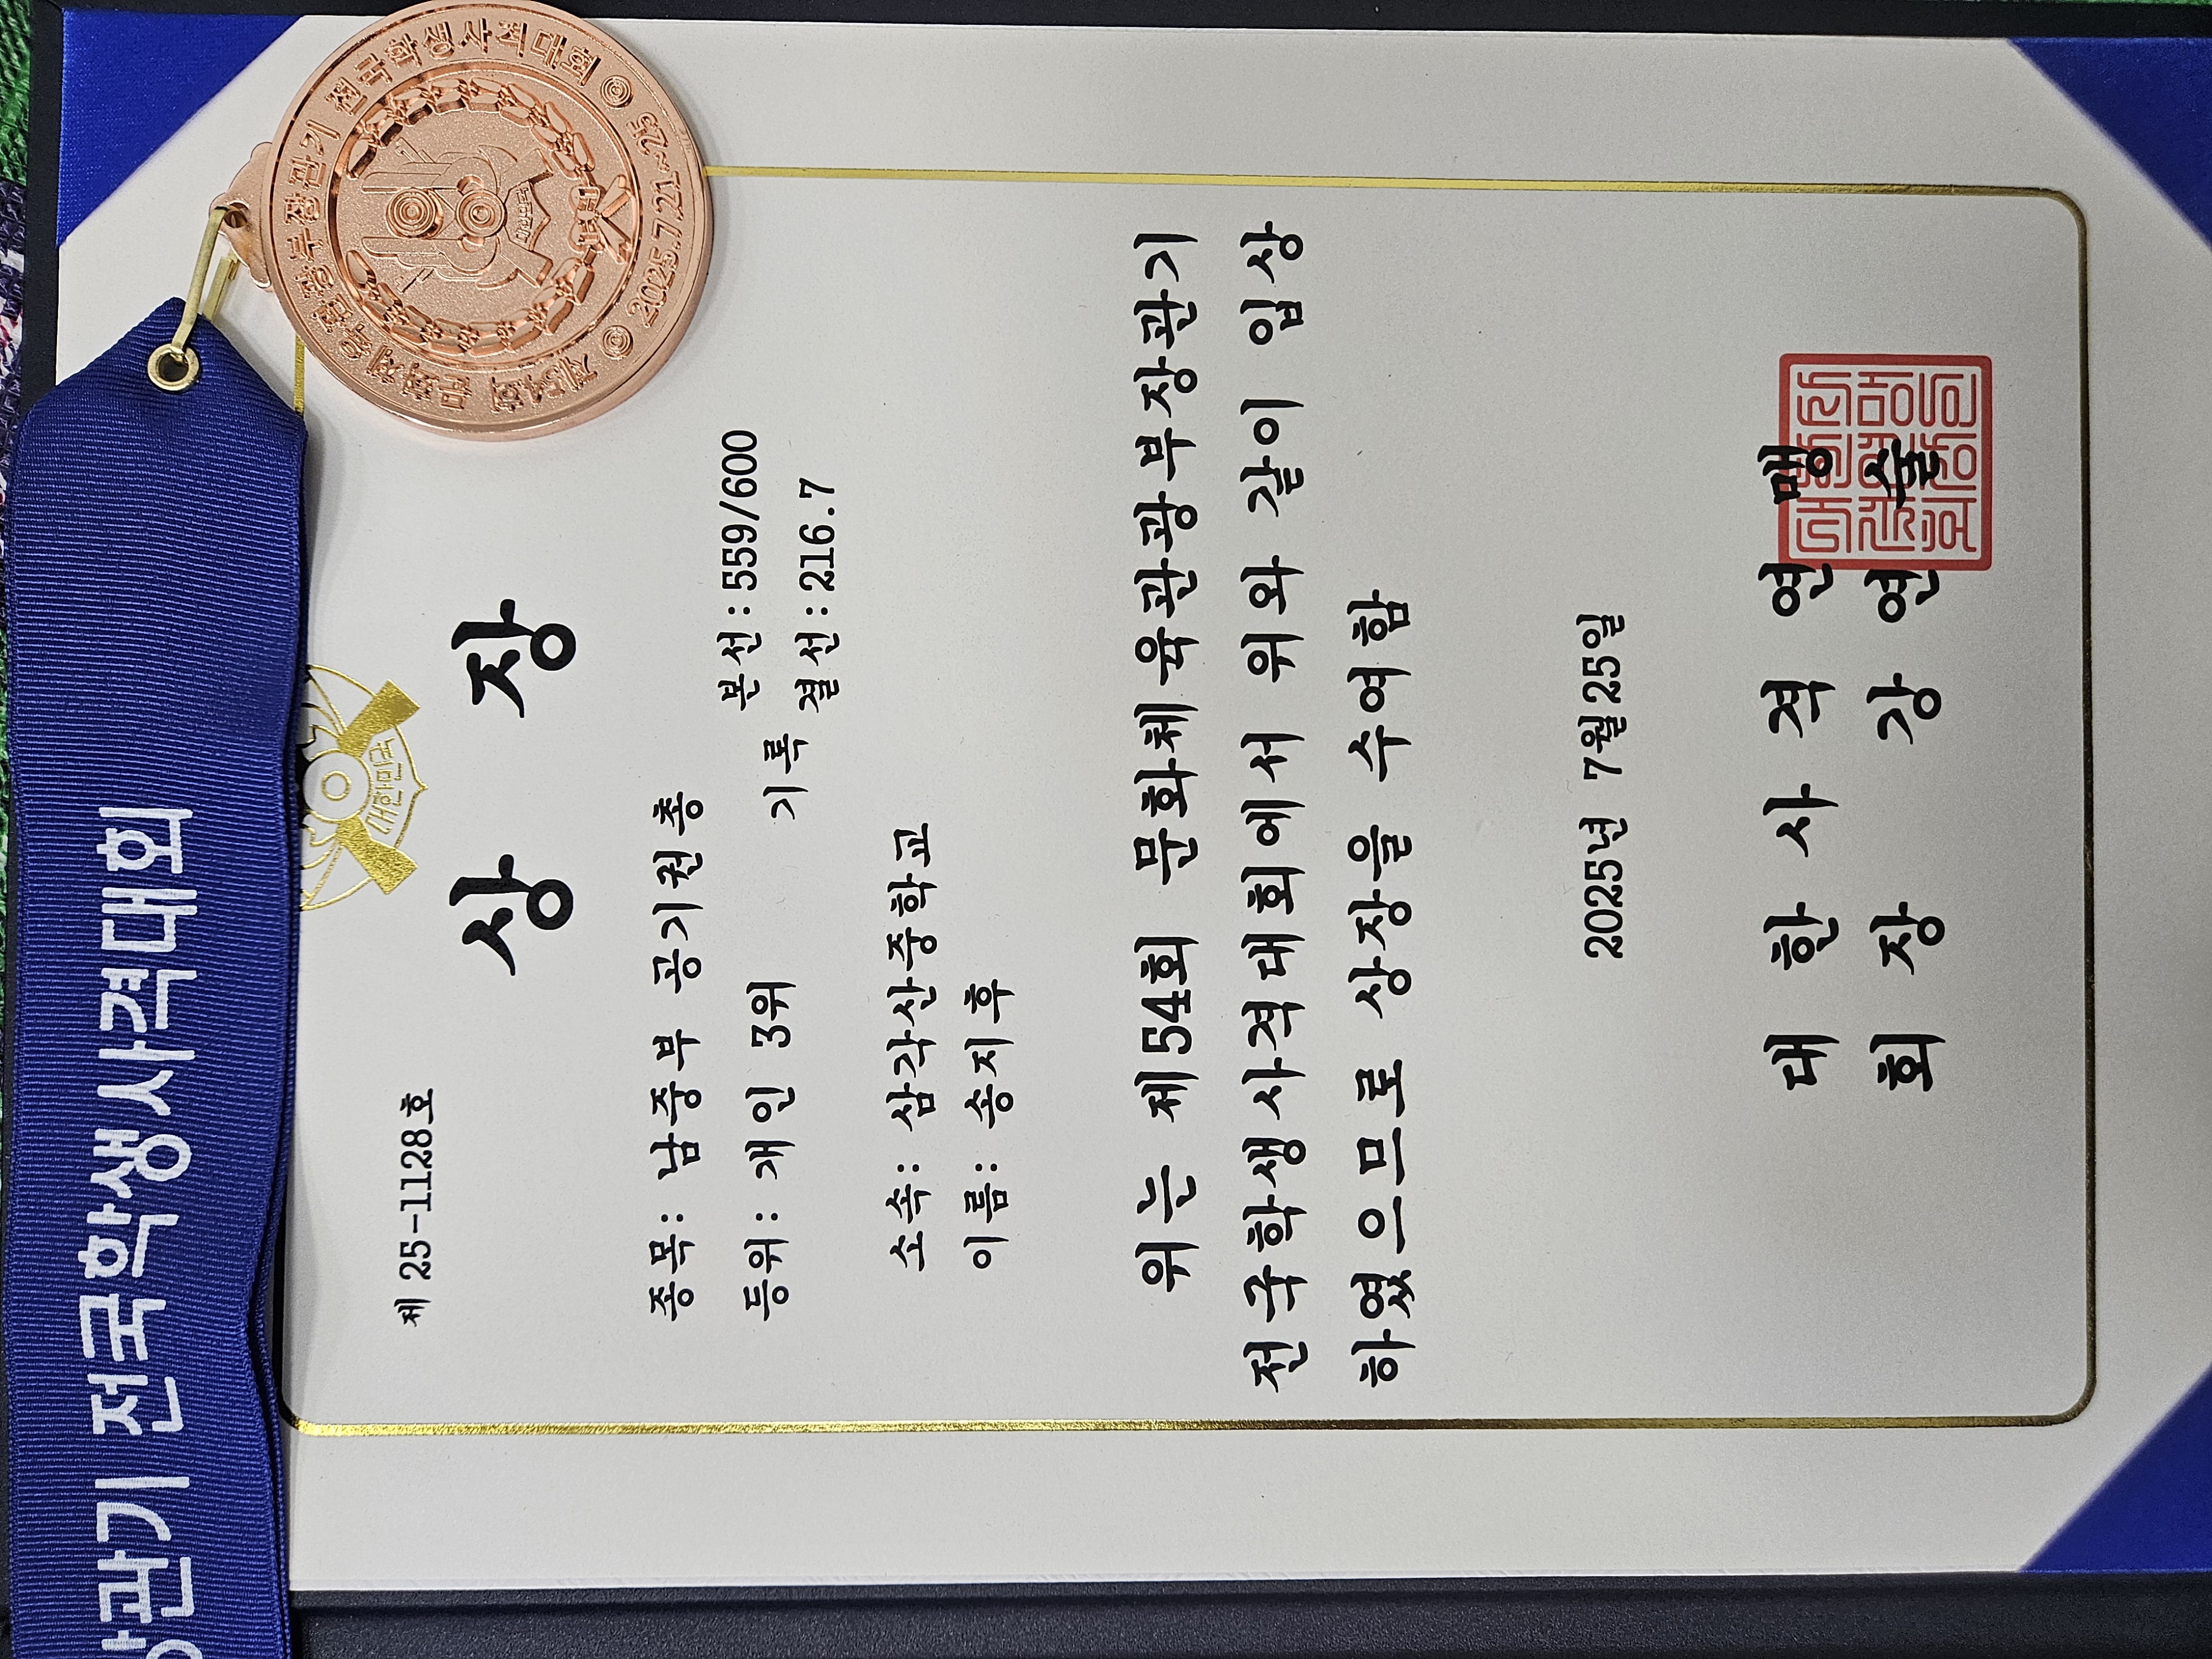 제 25-1128호
대한민국
상 장
종목: 남중부 공기권총
등위: 개인 3위
기록
본선:559/600
결선:216.7
소속: 삼각산중학교
이름: 송지후
위는 제54회 문화체육관광부장관기
전국학생사격대회에서 위와 같이 입상
하였으므로 상장을 수여함
2025년 7월25일
대 한 사 격 연 맹
회 장 강 연 술
장관기 전국학생사격대회
제54회 문화체육관광부장관기 전국학생사격대회
2025.7.21~7.25
대한민국